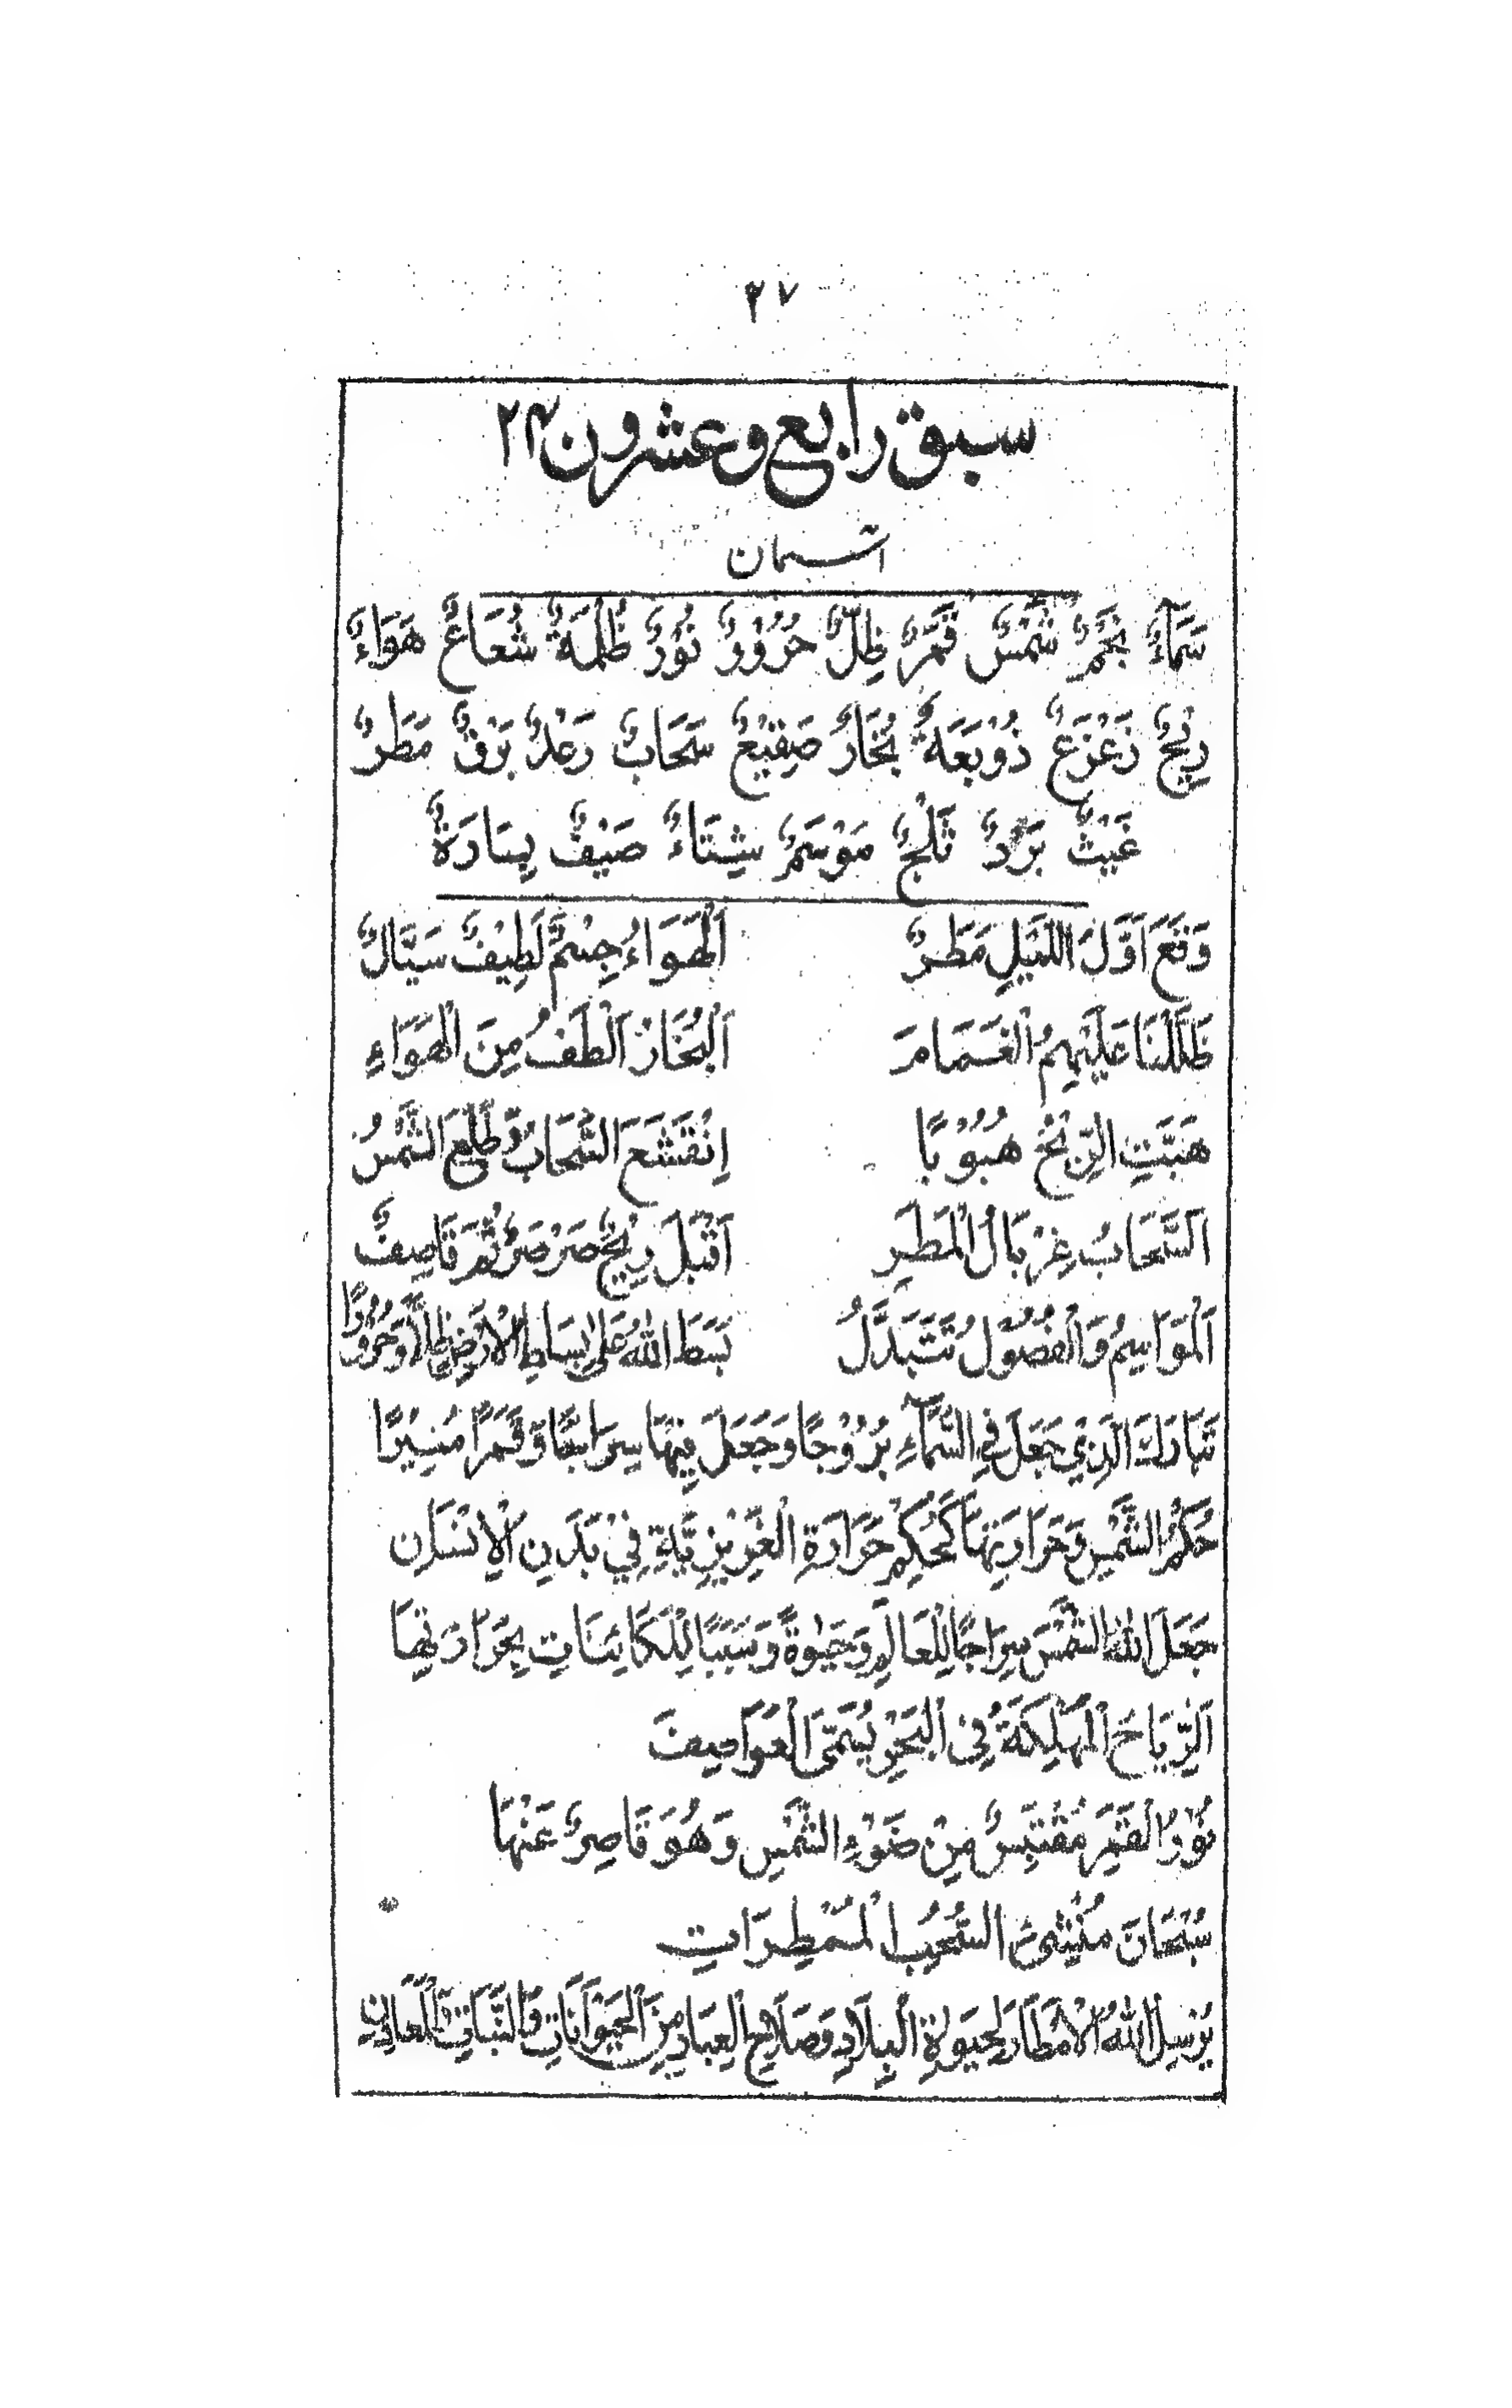 ٢٧
سبق رابع وعشرون ٢٤
اسمان
سَمَآءٌ نَجْمٌ شَمْسٌ قَمَرٌ ظِلٌّ حُرُوْرٌ نُوْرٌ ظُلْمَةٌ شُعَاعٌ هَوَاءٌ
رِيْحٌ زَعْزَعٌ ذُوْبَعَةٌ بُخَارٌ صَقِيْعٌ سَحَابٌ رَعْدٌ بَرْقٌ مَطَرٌ
غَيْثٌ بَرَدٌ ثَلْجٌ مَوْسَمٌ شِتَاءٌ صَيْفٌ
وَقَعَ اَوَّلَ اللَّيْلِ مَطَرٌ اَلْهَوَاءُ جِسْمٌ لَطِيْفٌ سَيَّالٌ
ظَلَّلْنَا عَلَيْهِمُ الْغَمَامَ اَلْبُخَارُ اَلْطَفُ مِنَ الْهَوَاءِ
هَبَّتِ الرِّيْحُ هُبُوْبًا اِنْقَشَعَ السَّحَابُ وَطَلَعَ الشَّمْسُ
اَلسَّحَابُ غِرْبَالُ الْمَطَرِ اَقْبَلَ رِيْحٌ صَرْصَرٌ ثُمَّ قَاصِفٌ
اَلْمَوَاسِمُ وَالْفُصُوْلُ تَتَبَدَّلُ بَسَطَ اللهُ عَلٰى بِسَاطِ الْاَرْضِ ظِلًّا وَحُرُوْرًا
تَبَارَكَ الَّذِيْ جَعَلَ فِي السَّمَآءِ بُرُوْجًا وَجَعَلَ فِيْهَا سِرَاجًا وَّقَمَرًا مُنِيْرًا
حُكْمُ الشَّمْسِ وَحَرَارَتِهَا كَحُكْمِ حَرَارَةِ الْغَرِيْزِيَّةِ فِيْ بَدَنِ الْاِنْسَانِ
جَعَلَ اللهُ الشَّمْسَ سِرَاجًا لِلْعَالَمِ وَحَيٰوةً وَسَبَبًا لِلْكَائِنَاتِ بِحَرَارَتِهَا
اَلرِّيَاحُ الْمُهْلِكَةُ فِي الْبَحْرِ يُسَمّٰى الْعَوَاصِفَ
نُوْرُ الْقَمَرِ مُقْتَبِسٌ مِنْ ضَوْءِ الشَّمْسِ وَهُوَ قَاصِرٌ عَنْهَا
سُبْحَانَ مُنْشِئِ السُّحُبِ الْمُمْطِرَاتِ
يُرْسِلُ اللهُ الْاَمْطَارَ لِحَيٰوةِ الْبِلَادِ وَصَلَاحِ الْعِبَادِ مِنَ الْحَيَوَانَاتِ وَالنَّبَاتِ وَالْمَعَادِنِ